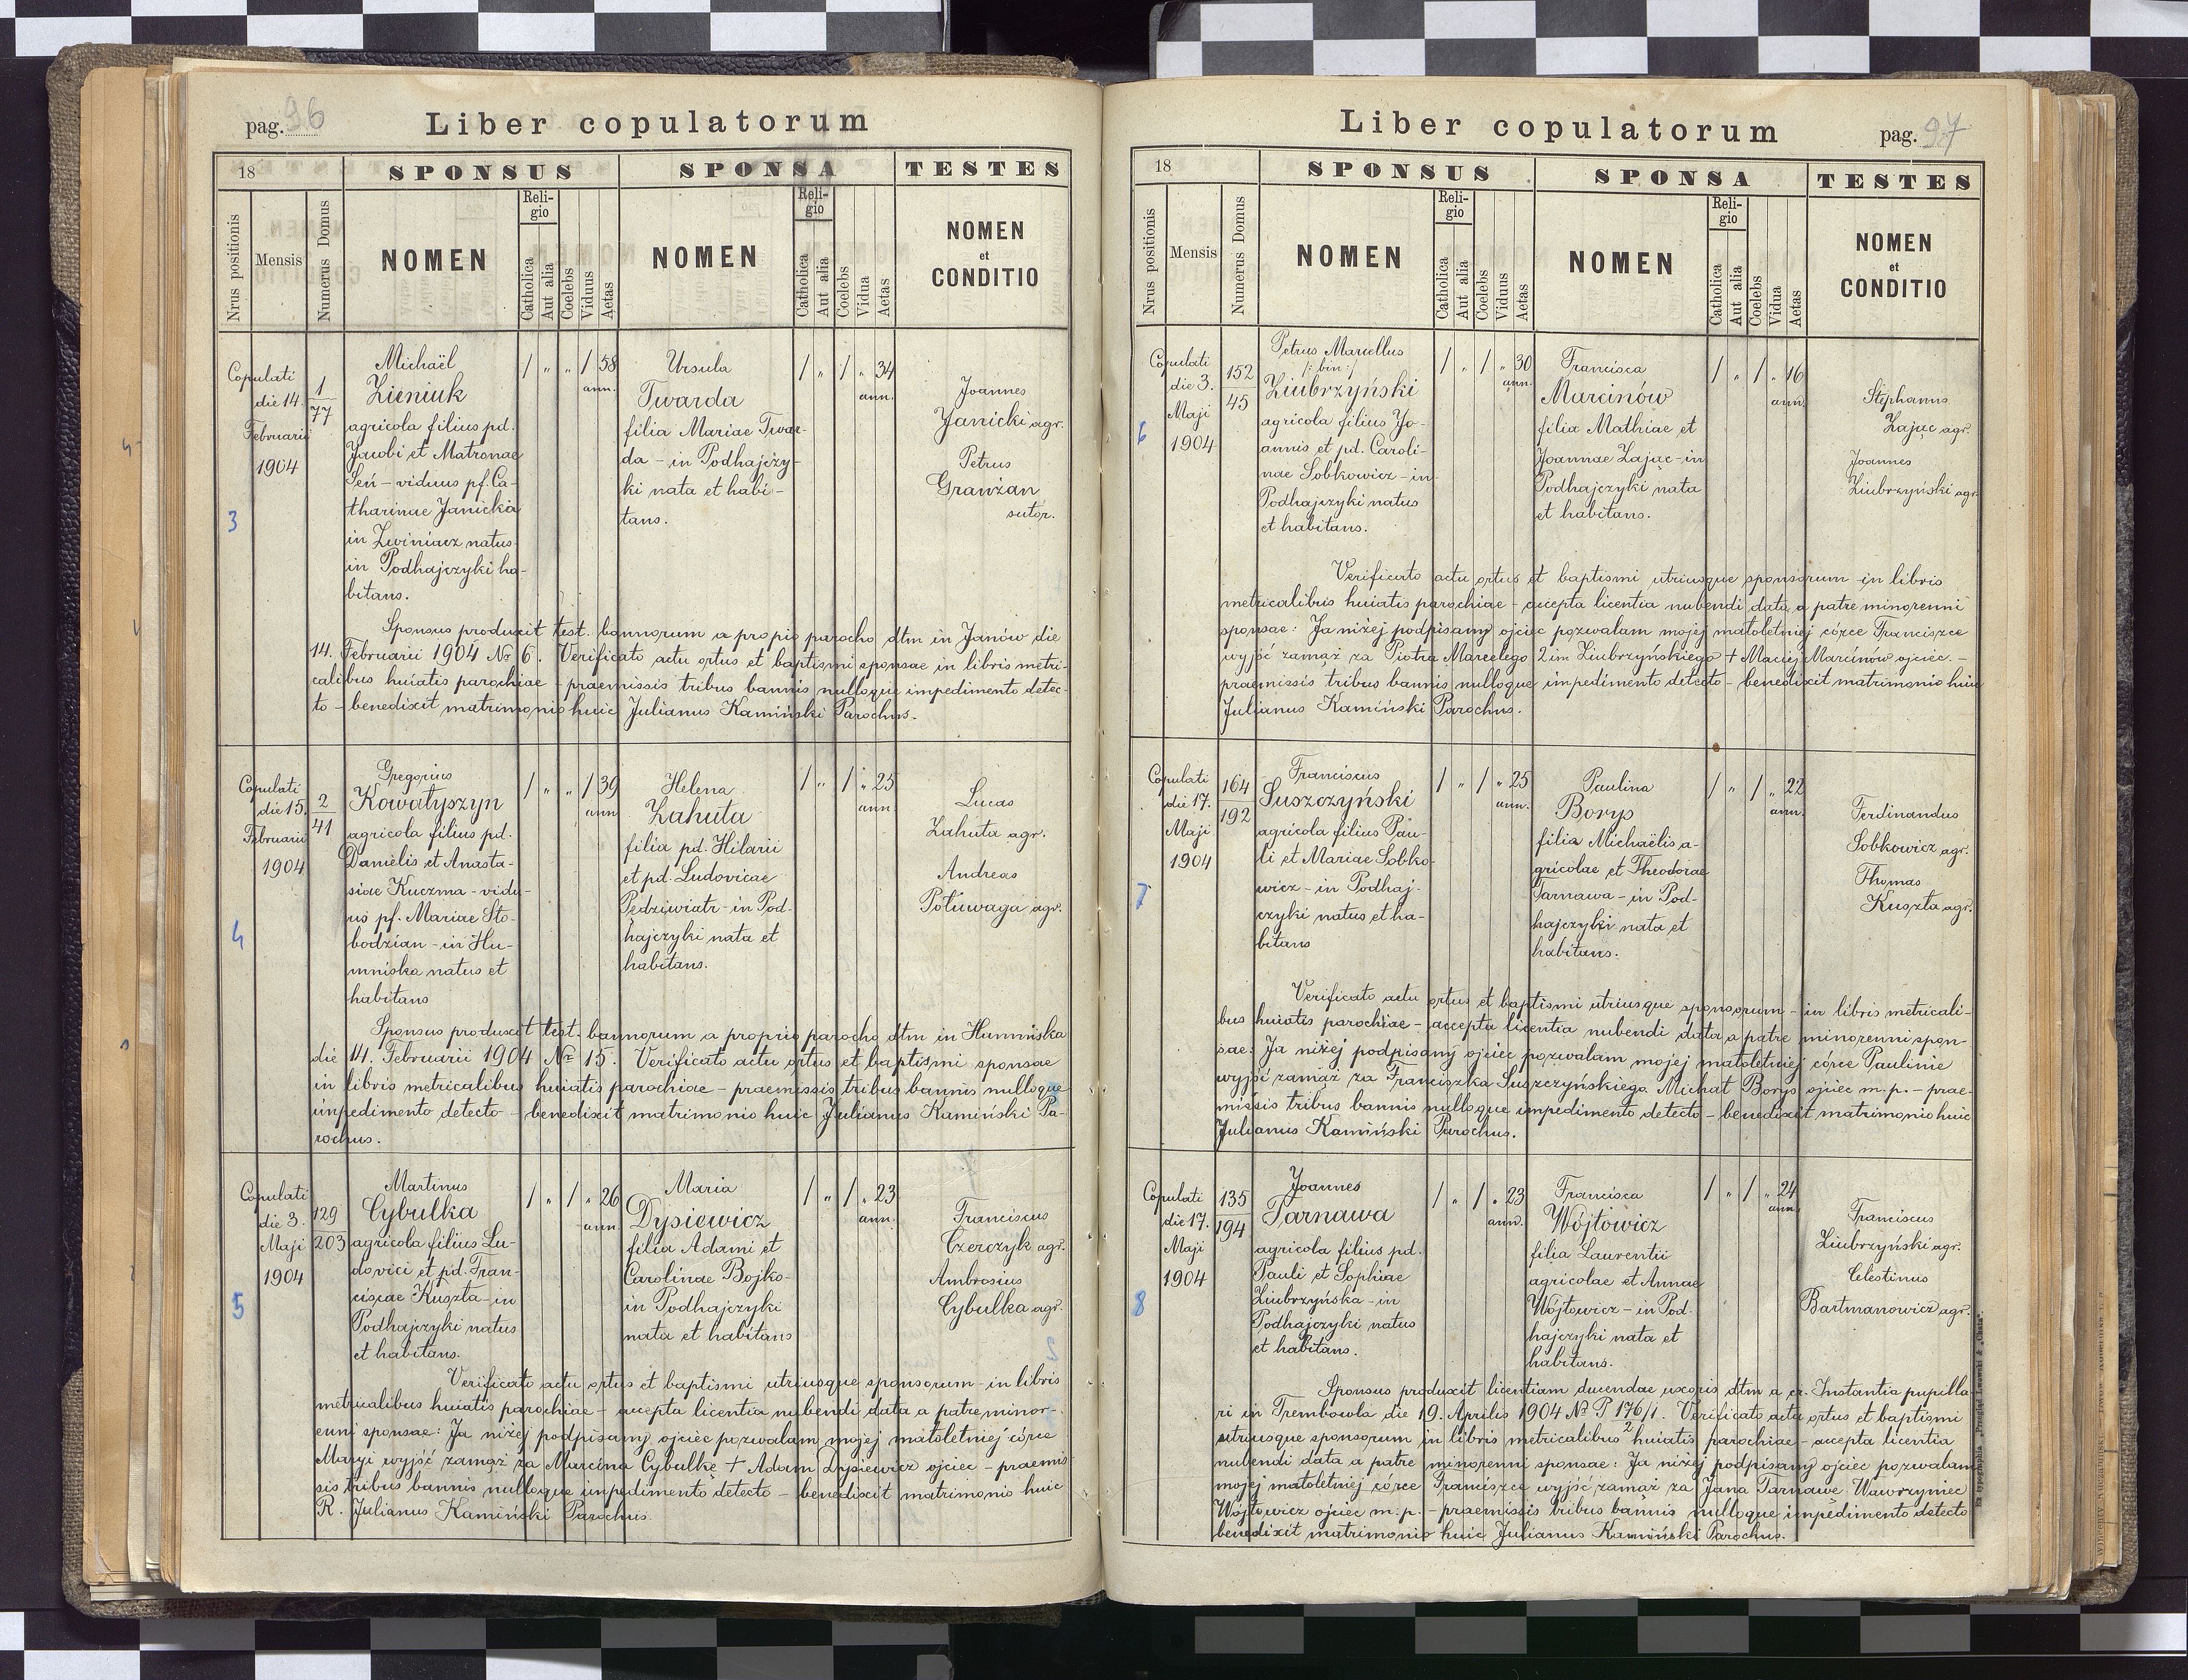 pag. 96
Liber copulatorum
18
SPONSUS
SPONSA
TESTES
Nrus positionis
Mensis
Numerus Domus
NOMEN
Religio
Catholica
Aut alia
Coelebs
Viduus
Aetas
NOMEN
Religio
Catholica
Aut alia
Coelebs
Vidua
Aetas
NOMEN
et
CONDITIO
3
Copulati
die 14.
Februarii
1904
1
77
Michaël
Zieniuk
agricola filius pd.
Jacobi et Matronae
Seń – viduus pf. Ca-
tharinae Janicka
in Zwiniacz natus
in Podhajczyki ha-
bitans.
/ „ „ / 58
ann.
Ursula
Twarda
filia Mariae Twar-
da – in Podhajczy-
ki nata et habi-
tans.
/ „ / „ 34
ann.
Joannes
Janicki agr.
Petrus
Granżan
sutor.
Sponsus produxit test. bannorum a propio parocho dtm in Janów die
14. Februarii 1904 № 6. Verificato actu ortus et baptismi sponsae in libris metri-
calibus huiatis parochiae – praemissis tribus bannis nulloque impedimento detec-
to – benedixit matrimonio huic Julianus Kamiński Parochus.
4
Copulati
die 15.
Februarii
1904
2
41
Gregorius
Kowałyszyn
agricola filius pd.
Danielis et Anasta-
siae Kuczma – vidu-
us pf. Mariae Sło-
bodzian – in Hu-
mniska natus et
habitans
/ „ „ / 39
ann
Helena
Zahuta
filia pd. Hilarii
et pd. Ludovicae
Pędziwiatr – in Pod-
hajczyki nata et
habitans.
/ „ / „ 25
ann
Lucas
Zahuta agr.
Andreas
Potuwaga agr.
Sponsus produxit test. bannorum a proprio parocho dtm in Humniska
die 14. Februarii 1904 № 15. Verificato actu ortus et baptismi sponsae
in libris metricalibus huiatis parochiae – praemissis tribus bannis nulloque
impedimento detecto – benedixit matrimonio huic Julianus Kamiński Pa-
rochus.
5
Copulati
die 3.
Maji
1904
129
203
Martinus
Cybulka
agricola filius Lu-
dovici et pd. Fran-
ciscae Kuszta – in
Podhajczyki natus
et habitans.
/ „ / „ 26
ann.
Maria
Dysiewicz
filia Adami et
Carolinae Bojko-
in Podhajczyki
nata et habitans
/ „ / „ 23
ann.
Franciscus
Czerczyk agr.
Ambrosius
Cybulka agr.
Verificato actu ortus et baptismi utriusque sponsorum – in libris
metricalibus huiatis parochiae – accepta licentia nubendi data a patre minor-
enni sponsae: Ja niżej podpisany ojciec pozwalam mojej małoletniej córce
Maryi wyjść zamąż za Marcina Cybulkę + Adam Dysiewicz ojciec – praemis
sis tribus bannis nulloque impedimento detecto – benedixit matrimonio huic
R. Julianus Kamiński Parochus.
Liber copulatorum
pag. 97
18
SPONSUS
SPONSA
TESTES
Nrus positionis
Mensis
Numerus Domus
NOMEN
Religio
Catholica
Aut alia
Coelebs
Viduus
Aetas
NOMEN
Religio
Catholica
Aut alia
Coelebs
Vidua
Aetas
NOMEN
et
CONDITIO
6
Copulati
die 3.
Maji
1904
152
45
Petrus Marcellus
/: bin :/
Ziubrzyński
agricola filius Jo-
annis et pd. Caroli-
nae Sobkowicz – in
Podhajczyki natus
et habitans.
/ „ / „ 30
ann.
Francisca
Marcinów
filia Mathiae et
Joannae Zając – in
Podhajczyki nata
et habitans.
/ „ / „ 16
ann.
Stephanus
Zając agr.
Joannes
Ziubrzyński agr.
Verificato actu ortus et baptismi utriusque sponsorum – in libris
metricalibus huiatis parochiae – accepta licentia nubendi data a patre minorenni
sponsae: Ja niżej podpisany ojciec pozwalam mojej małoletniej córce Franciszce
wyjść zamąż za Piotra Marcelego 2 im Ziubrzyńskiego + Maciej Marcinów ojciec. –
praemissis tribus bannis nulloque impedimento detecto – benedixit matrimonio huic
Julianus Kamiński Parochus.
7
Copulati
die 17.
Maji
1904
164
192
Franciscus
Suszczyński
agricola filius Pau-
li et Mariae Sobko-
wicz – in Podhaj-
czyki natus et ha-
bitans
/ „ / „ 25
ann.
Paulina
Borys
filia Michaëlis a-
gricolae et Theodorae
Tarnawa – in Pod-
hajczyki nata et
habitans.
/ „ / „ 22
ann.
Ferdinandus
Sobkowicz agr.
Thomas
Kuszta agr.
Verificato actu ortus et baptismi utriusque sponsorum – in libris metricali-
bus huiatis parochiae – accepta licentia nubendi data a patre minorenni spon-
sae: Ja niżej podpisany ojciec pozwalam mojej małoletniej córce Paulinie
wyjść zamąż za Franciszka Suszczyńskiego Michał Borys ojciec m. p. – prae-
missis tribus bannis nulloque impedimento detecto – benedixit matrimonio huic
Julianus Kamiński Parochus.
8
Copulati
die 17.
Maji
1904
135
194
Joannes
Tarnawa
agricola filius pd.
Pauli et Sophiae
Ziubrzyńska – in
Podhajczyki natus
et habitans.
/ „ / „ 23
ann.
Francisca
Wójtowicz
filia Laurentii
agricolae et Annae
Wójtowicz – in Pod-
hajczyki nata et
habitans.
/ „ / „ 24
ann
Franciscus
Ziubrzyński agr.
Celestinus
Bartmanowicz agr.
Sponsus produxit licentiam ducendae uxoris dtm a cr. Instantia pupilla-
ri in Trembowla die 19. Aprilis 1904 № P 176/1. Verificato actu ortus et baptismi
2
utriusque sponsorum in libris metricalibus huiatis parochiae – accepta licentia
nubendi data a patre minorenni sponsae: Ja niżej podpisany ojciec pozwalam
mojej małoletniej córce Franciszce wyjść zamąż za Jana Tarnawę Wawrzyniec
Wójtowicz ojciec m. p. – praemissis tribus bannis nulloque impedimento detecto
benedixit matrimonio huic Julianus Kamiński Parochus.